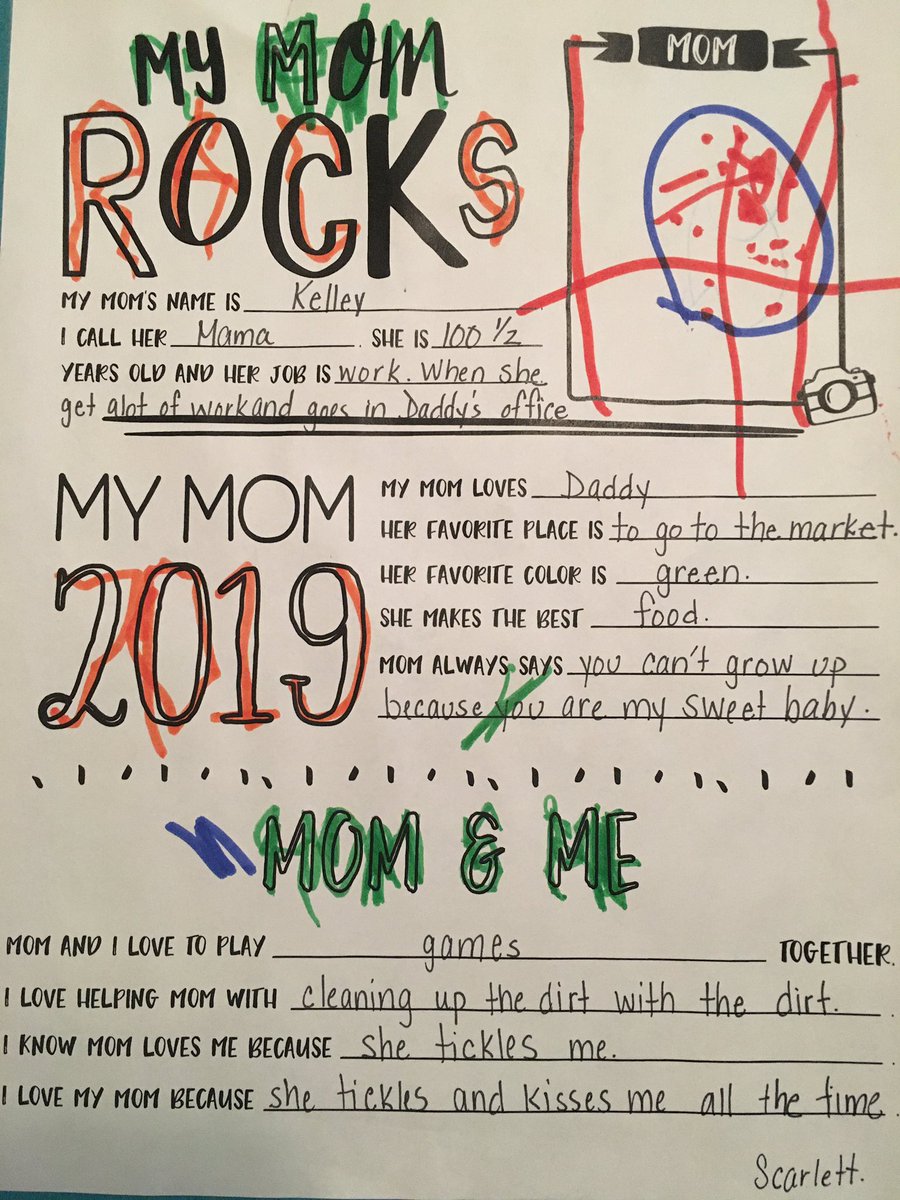 My MOM
ROCKS
MOM
MY MOM'S NAME IS Kelley
I CALL HER Mama. SHE IS 100 1/2
YEARS OLD AND HER JOB IS work. When she
get alot of work and goes in Daddy's office
MY MOM
2019
MY MOM LOVES Daddy
HER FAVORITE PLACE IS to go to the market.
HER FAVORITE COLOR IS green.
SHE MAKES THE BEST food.
MOM ALWAYS SAYS you can't grow up
because you are my sweet baby.
MOM & ME
MOM AND I LOVE TO PLAY games TOGETHER.
I LOVE HELPING MOM WITH cleaning up the dirt with the dirt.
I KNOW MOM LOVES ME BECAUSE she tickles me.
I LOVE MY MOM BECAUSE she tickles and kisses me all the time
Scarlett.